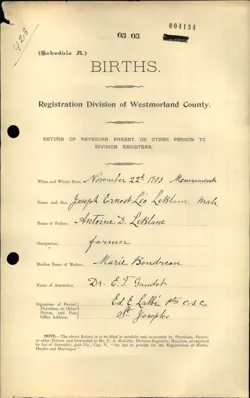 004184
03 03
428
(Schedule A.)
BIRTHS.
Registration Division of Westmorland County.
RETURN OF PHYSICIAN PARENT, OR OTHER PERSON TO
DIVISION REGISTRAR.
When and Where Born, November 22d 1903
Name and Sex, Joseph Ernest Léo LeBlanc Male
Name of Father, Antoine D. LeBlanc
Occupation, farmer
Maiden Name of Mother, Marie Boudreau
Name of Accoucher, Dr. E. T. Gaudet
Signature of Parent,
Physician, or Other
Person, and Post
Office Address.
Ed. E. Labbé Ptre c.s.c.
St Josephs
NOTE.—The above Return is to be filled in carefully and accurately by Physician, Parent,
or other Person, and forwarded to Division Registrar, Moncton, as required
by Act of Assembly, "An Act to provide for the Registration of Births,
Deaths and Marriages."